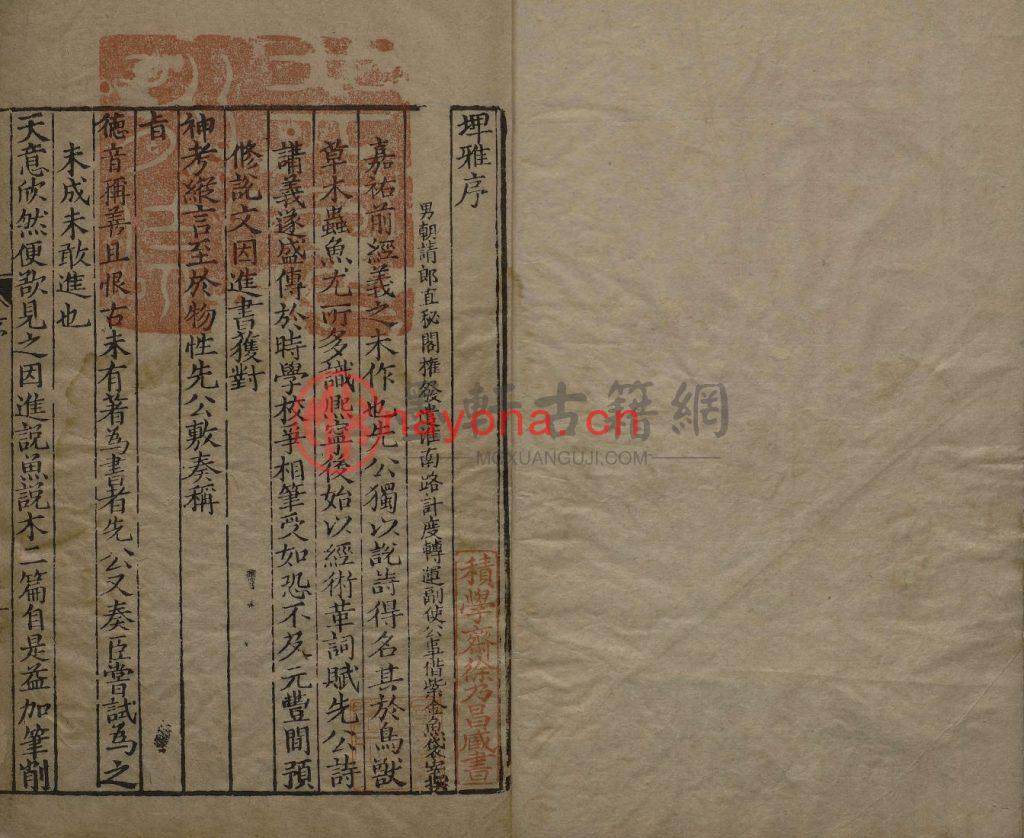 埤雅序
男朝請郎直秘閣權發遣淮南路計度轉運副使公事借紫金魚袋宰撰
嘉祐前經義之未作也先公獨以說詩得名其於鳥獸
草木蟲魚尤所多識熈寧後始以經術革詞賦先公詩
講義遂盛傳於時學校爭相筆受如恐不及元豐間預
修說文因進書獲對
神考縱言至於物性先公敷奏稱
旨
德音稱善且恨古未有著為書者先公又奏臣嘗試為之
未成未敢進也
天意欣然便欲見之因進說魚說木二篇自是益加筆削
積學齋徐乃昌藏書
墨軒古籍網
nayona.cn
MOXUANGUJI.COM